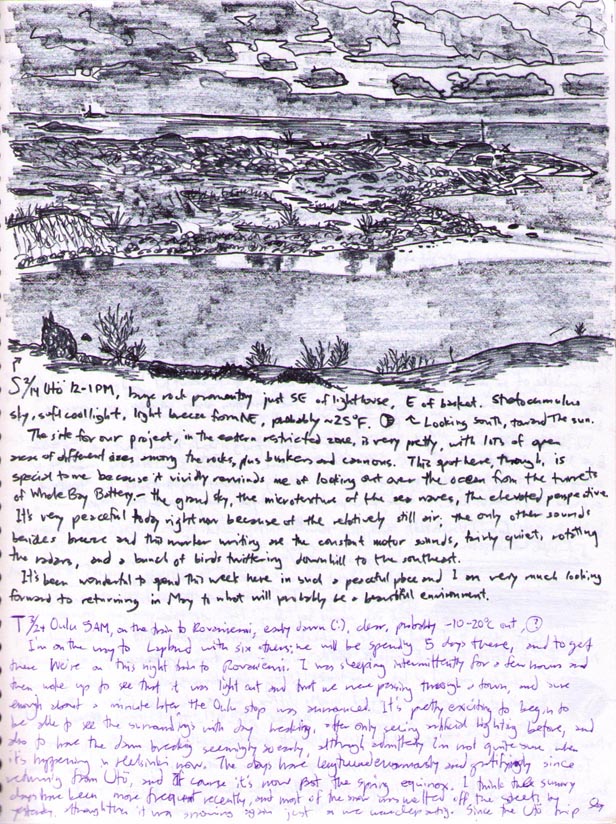 S 2/14 Utö 12-1PM, large rock promontory just SE of lighthouse, E of basket. Stratocumulus
sky, soft cool light, light breeze from NE, probably ~25°F. Looking South, toward The sun.
The site for our project, in the eastern restricted zone, is very pretty, with lots of open
areas of different sizes among the rocks, plus bunkers and cannons. This spot here, though, is
special to me because it vividly reminds me of looking out over the ocean from the turrets
of Whole Bay Battery - the grand sky, the microtexture of the sea waves, the elevated perspective.
It's very peaceful today right now because of the relatively still air, the only other sounds
besides breeze and this marker writing are the constant motor sounds, fairly quiet, rotating
the radars, and a bunch of birds twittering downhill to the southeast.
It's been wonderful to spend this week here in such a peaceful place and I am very much looking
forward to returning in May to what will probably be a beautiful environment.
T 3/24 Oulu 5AM, on the train to Rovaniemi, early dawn (:), clear, probably -10-20°C out,
I'm on the way to Lapland with six others; we will be spending 5 days there, and to get
there we're on this night train to Rovaniemi. I was sleeping intermittently for a few hours and
then woke up to see that it was light out and that we were passing through a town, and sure
enough about a minute later the Oulu stop was announced. It's pretty exciting to begin to
be able to see the surroundings with day breaking, after only seeing artificial lighting before, and
also to have the dawn breaking seemingly so early, although admittedly I'm not quite sure when
it's happening in Helsinki now. The days have lengthened enormously and gratifyingly since
returning from Utö, and of course it's now past the spring equinox. I think the sunny
days have been more frequent recently, and most of the snow was melted off the streets by
yesterday, though then it was snowing again just as we were departing. Since the Utö trip